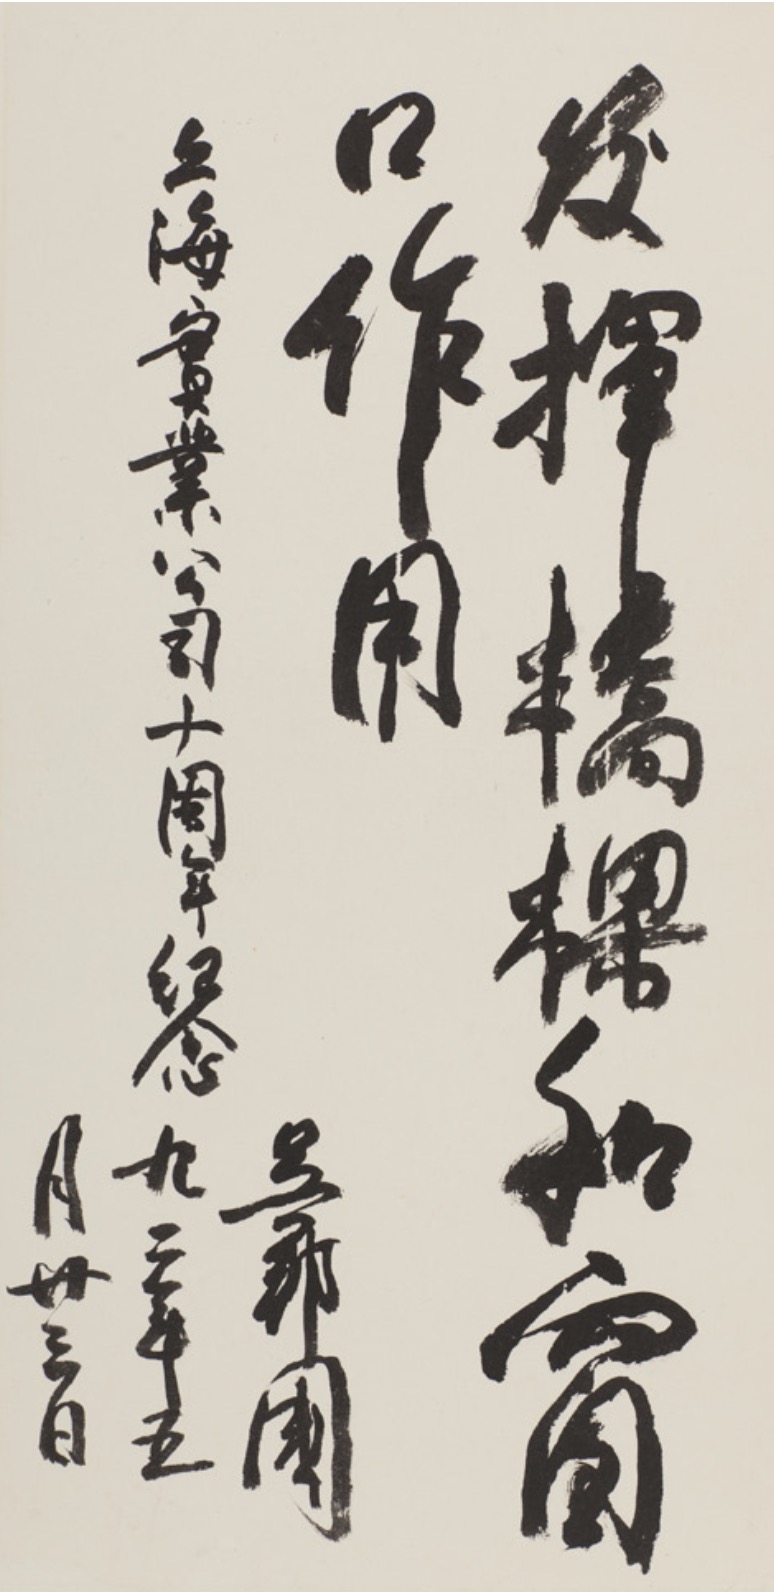 发揮橋樑和窗
口作用
上海實業公司十周年纪念
吴邦國
九二年五
月廿三日